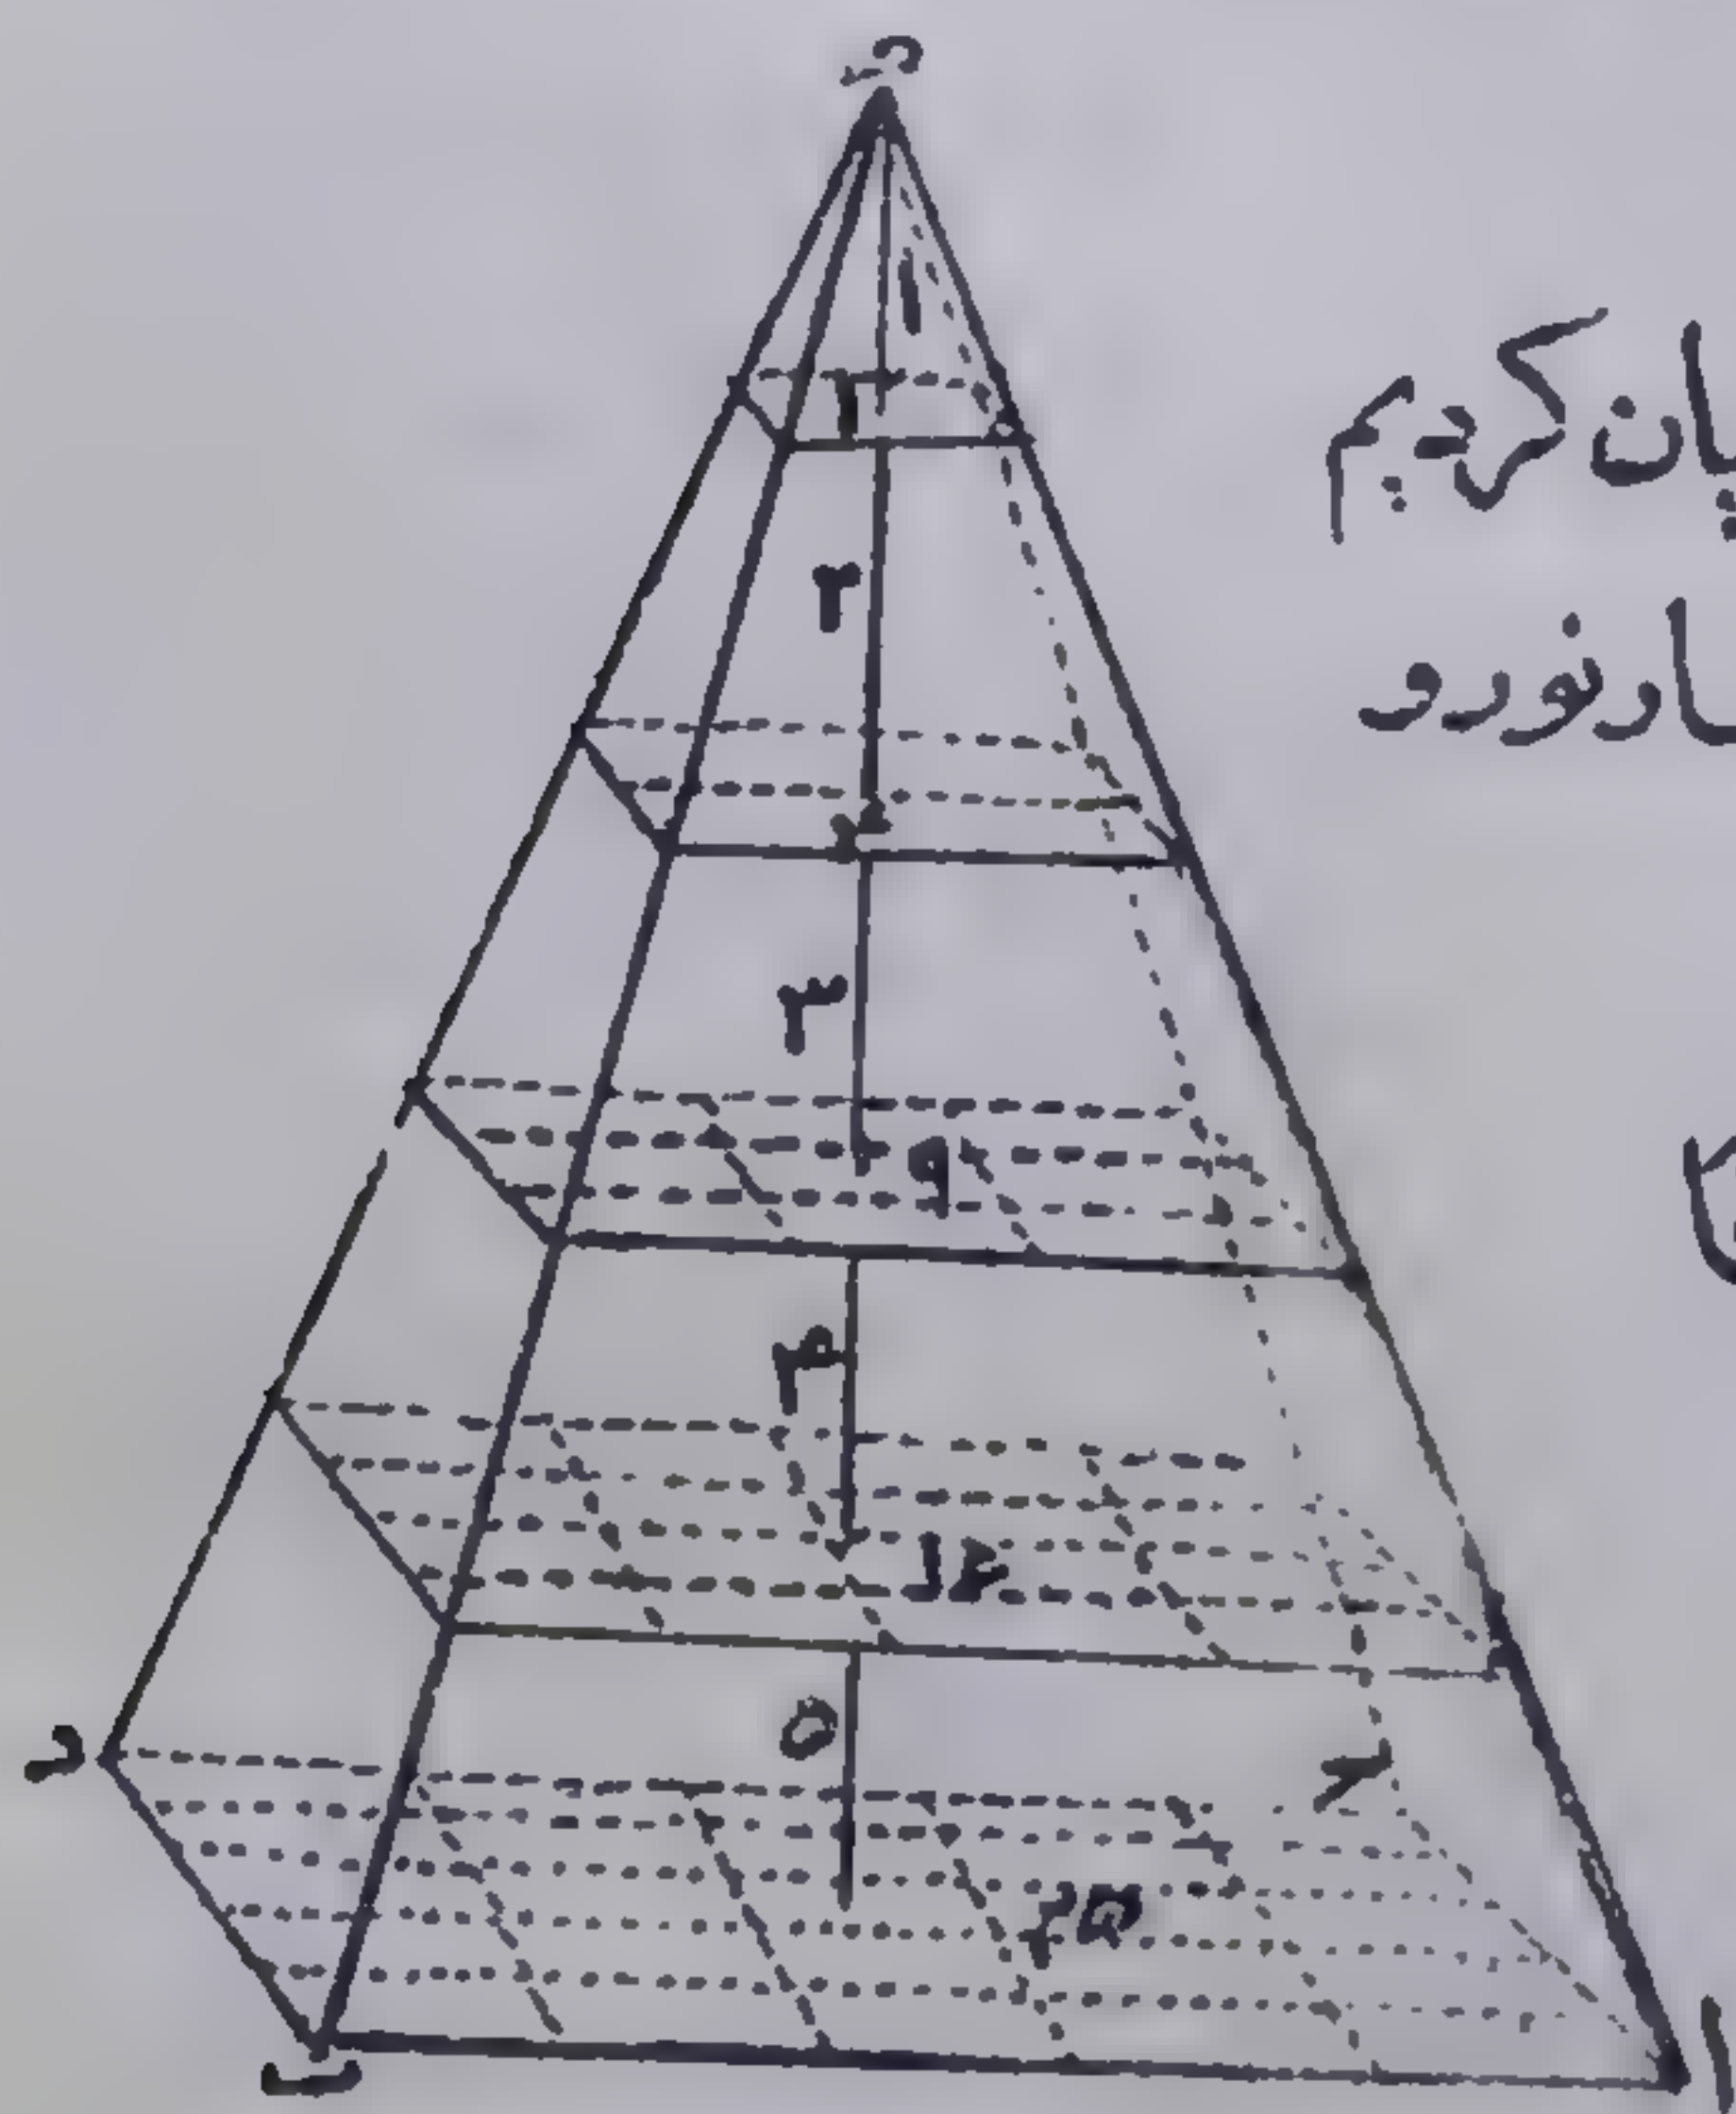 ۱
۱
یان کردیم
۲
ار نور و
۴
۳
۹
۴
۱۶
۵
د
۲۵
ب
ا